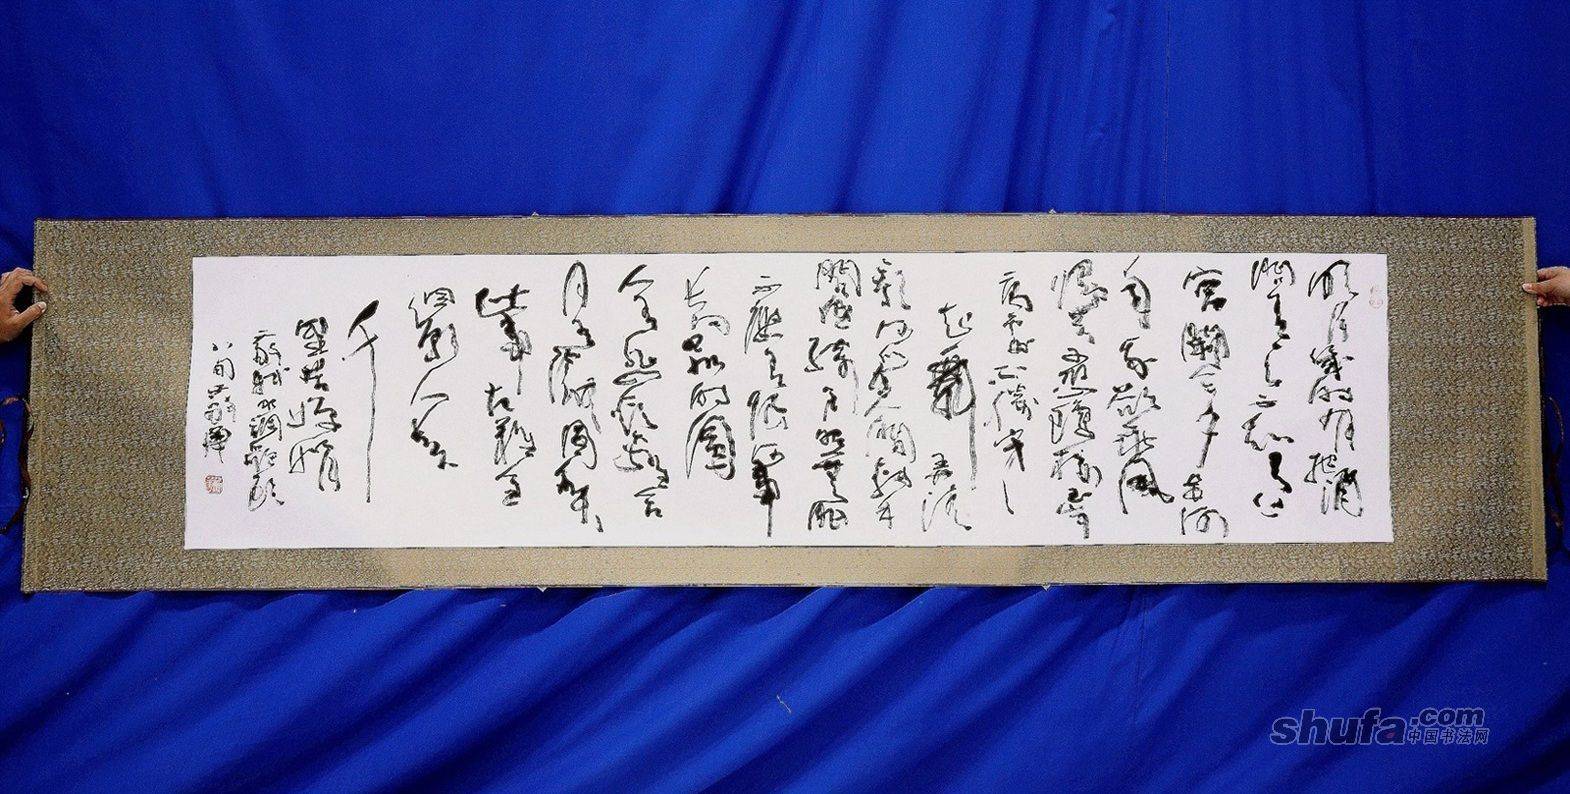 明月几时有把酒
问青天不知天上
宫阙今夕是何
年我欲乘风
归去又恐琼楼玉宇
高处不胜寒
起舞弄清
影何似在人间转朱
阁低绮户照无眠
不应有恨何事
长向别时圆
人有悲欢离合
月有阴晴圆缺
此事古难全
但愿人长久
千
里共婵娟
苏轼水调歌头
八旬
shufa.com
中国书法网